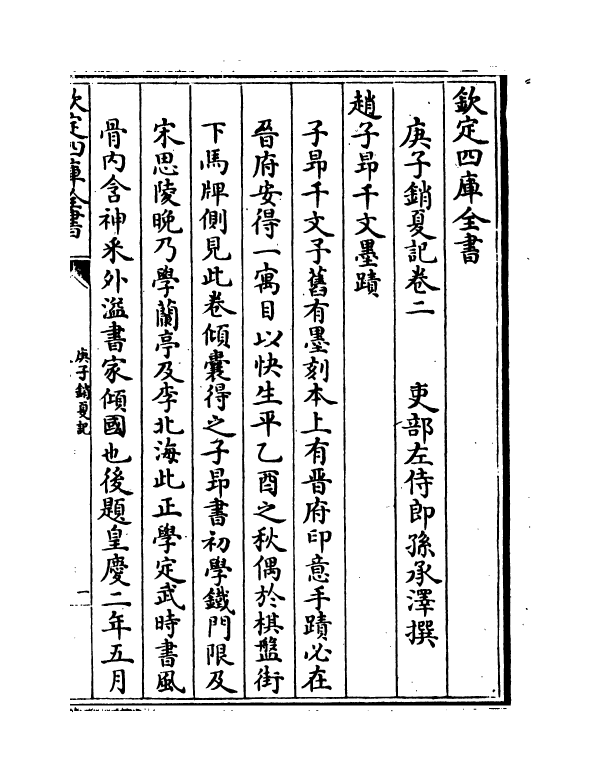 欽定四庫全書
庚子銷夏記卷二　　吏部左侍郎孫承澤撰
趙子昂千文墨蹟
子昂千文子舊有墨刻本上有晋府印意手蹟必在
晉府安得一寓目以快生平乙酉之秋偶於棋盤街
下馬牌側見此卷傾囊得之子昂書初學鐵門限及
宋思陵晚乃學蘭亭及李北海此正學定武時書風
骨内含神采外溢書家傾國也後題皇慶二年五月
欽定四庫全書
庚子銷夏記
一